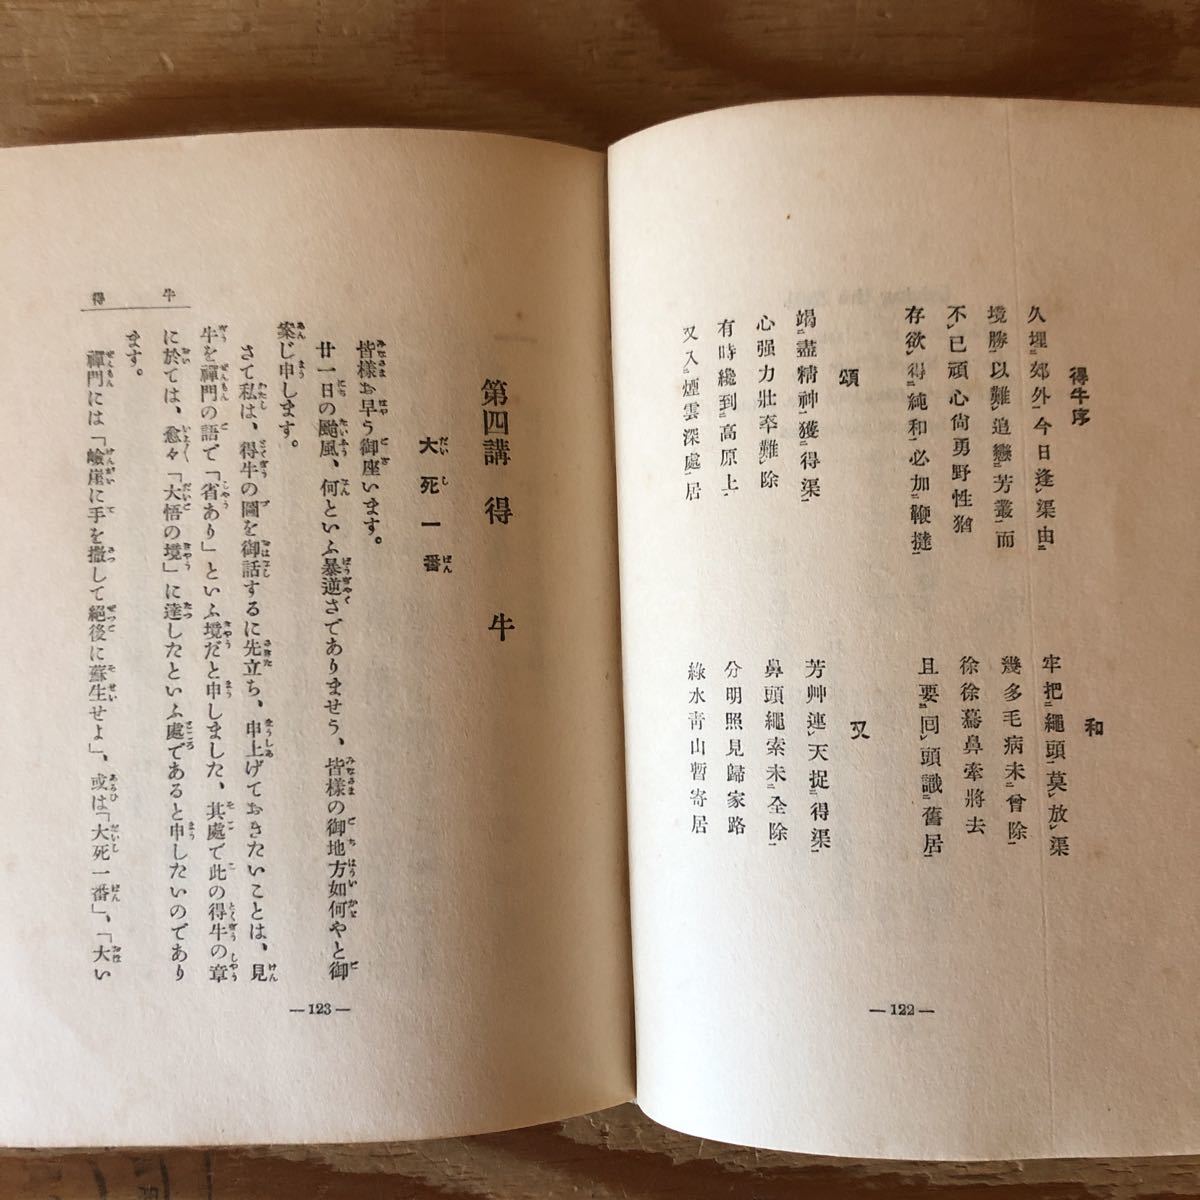 得牛序
久埋郊外今日逢渠由
境勝以難追戀芳叢而
不已頑心尙勇野性猶
存欲得純和必加鞭撻
頌
竭盡精神獲得渠
心强力壯卒難除
有時纔到高原上
又入煙雲深處居
和
牢把繩頭莫放渠
幾多毛病未曾除
徐徐驀鼻牽將去
且要囘頭識舊居
又
芳艸連天捉得渠
鼻頭繩索未全除
分明照見歸家路
綠水靑山暫寄居
— 122 —
第四講 得牛
大死一番
皆樣お早う御座います。
廿一日の颱風、何といふ暴逆さでありませう、皆樣の御地方如何やと御
案じ申します。
さて私は、得牛の圖を御話するに先立ち、申上げておきたいことは、見
牛を禪門の語で「省あり」といふ境だと申しました、其處で此の得牛の章
に於ては、愈々「大悟の境」に達したといふ處であると申したいのであり
ます。
禪門には「嶮崖に手を撒して絕後に蘇生せよ」、或は「大死一番」、「大い
得牛
— 123 —